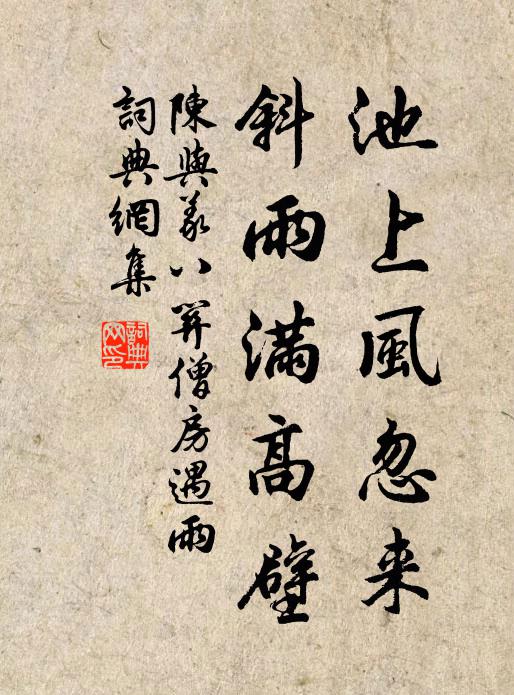 池上風忽来
斜雨滿高壁
陳與義八關僧房遇雨
詞典網集
詞典网印